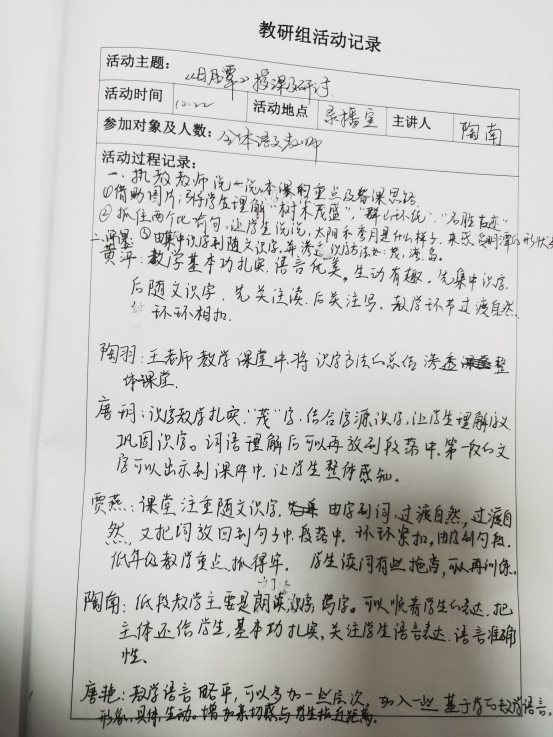 教研组活动记录
活动主题：《日月潭》授课及研讨
活动时间 10.22 活动地点 录播室 主讲人 陶南
参加对象及人数：全体语文教师
活动过程记录：
一、执教教师说一说本课的重点及备课思路
①借助图片，引导学生理解“树木茂盛”，“群山环绕”，“名胜古迹”
②抓住两个比喻句，让学生说说，太阳和弯月是什么样子，来感知潭的形状
二、评课 ③由集中识字到随文识字，并渗透识字方法如：茂，湾，岛。
黄萍：教学基本功扎实，语言优美。生动有趣，先集中识字，
后随文识字，先关注读，后关注写。教学环节过渡自然，
环环相扣。
陶羽：王老师教学课堂中，将识字方法的总结渗透整
体课堂。
唐词：识字教学扎实，“茂”字，结合字源识字，让学生理解字义
巩固识字。词语理解后可以再放到段落中，第一段的文
字可以出示到课件中，让学生整体感知。
贾燕：课堂注重随文识字，由字到词，过渡自然，过渡自
然，又把词放回到句子中，段落中，环环紧扣，由字到句段，
低年级教学重点，抓得牢。学生读词有些拖音，可以再训练。
陶南：低段教学主要是朗读，识字，写字。可以顺着学生的表达，把
主体还给学生，基本功扎实，关注学生语言表达，语言准确
性。
唐艳：教学语言略平，可以多加一些层次，加入一些基于学生的教学语言。
形象，具体，生动。增加亲切感与学生拉近距离。